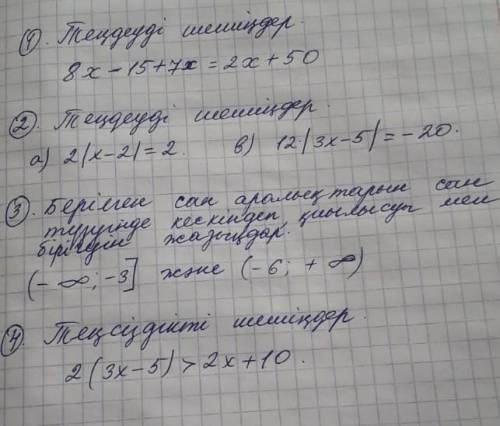 1. Теңдеуді шешіңдер.
8x - 15 + 7x = 2x + 50
2. Теңдеуді шешіңдер.
а) 2|x-2| = 2. в) 12|3x-5| = -20.
3. Берілген сан аралықтарын сан
түзуінде кескіндеп, қиылысуы мен
бірігуін жазыңдар.
(-∞; -3] және (-6; +∞)
4. Теңсіздікті шешіңдер.
2(3x-5) > 2x+10.